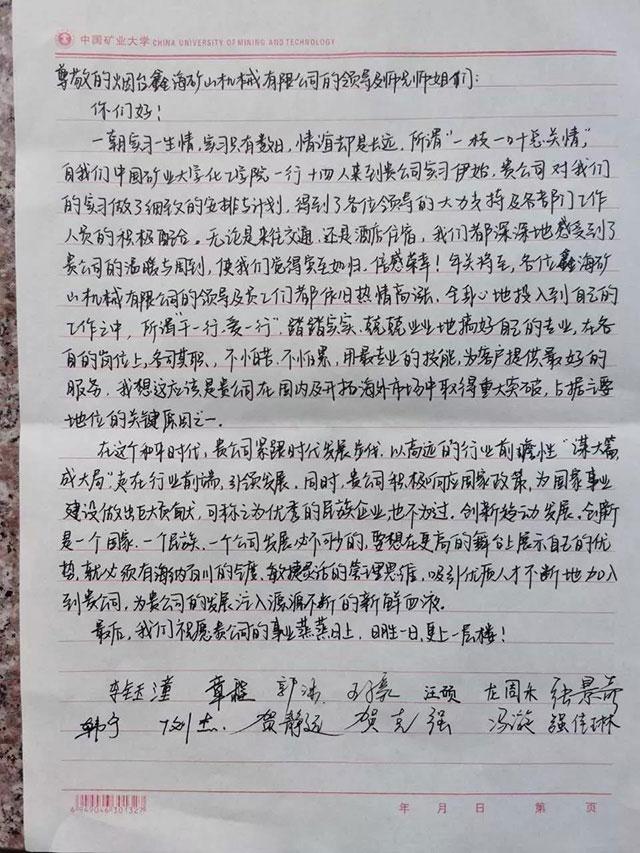 中国矿业大学 CHINA UNIVERSITY OF MINING AND TECHNOLOGY
尊敬的烟台鑫海矿山机械有限公司的领导及师兄师姐们：
你们好！
一朝实习一生情，实习只有数日，情谊却是长远，所谓"一枝一叶总关情"，
自我们中国矿业大学化工学院一行十四人来到贵公司实习伊始，贵公司对我们
的实习做了细致的安排与计划，得到了各位领导的大力支持及各部门工作
人员的积极配合。无论是来往交通，还是酒店住宿，我们都深深地感受到了
贵公司的温暖与周到，使我们觉得宾至如归，倍感荣幸！年关将至，各位鑫海矿
山机械有限公司的领导及员工们都依旧热情高涨，全身心地投入到自己的
工作之中，所谓"干一行，爱一行"，踏踏实实、兢兢业业地搞好自己的专业，在各
自的岗位上，各司其职，不怕苦、不怕累，用最专业的技能，为客户提供最好的
服务，我想这应该是贵公司在国内及开拓海外市场中取得重大突破，占据主要
地位的关键原因之一．
在这个和平时代，贵公司紧跟时代发展步伐，以高远的行业前瞻性"谋大篇，
成大局"走在行业前端，引领发展．同时，贵公司积极响应国家政策，为国家事业
建设做出巨大贡献，可称之为优秀的民族企业也不为过．创新驱动发展，创新
是一个国家、一个民族、一个公司发展必不可少的，要想在更高的舞台上展示自己的优
势，就必须有海纳百川的气度、敏捷灵活的管理思维，吸引优质人才不断地加入
到贵公司，为贵公司的发展注入源源不断的新鲜血液．
最后，我们祝愿贵公司的事业蒸蒸日上，日胜一日，更上一层楼！
李钰潼 章程 郭涛 汪硕 左周永 张景奇
韩宁 刘杰 贺静远 贺克强 冯漩 强佳琳
6 949046 301327
年 月 日 第 页